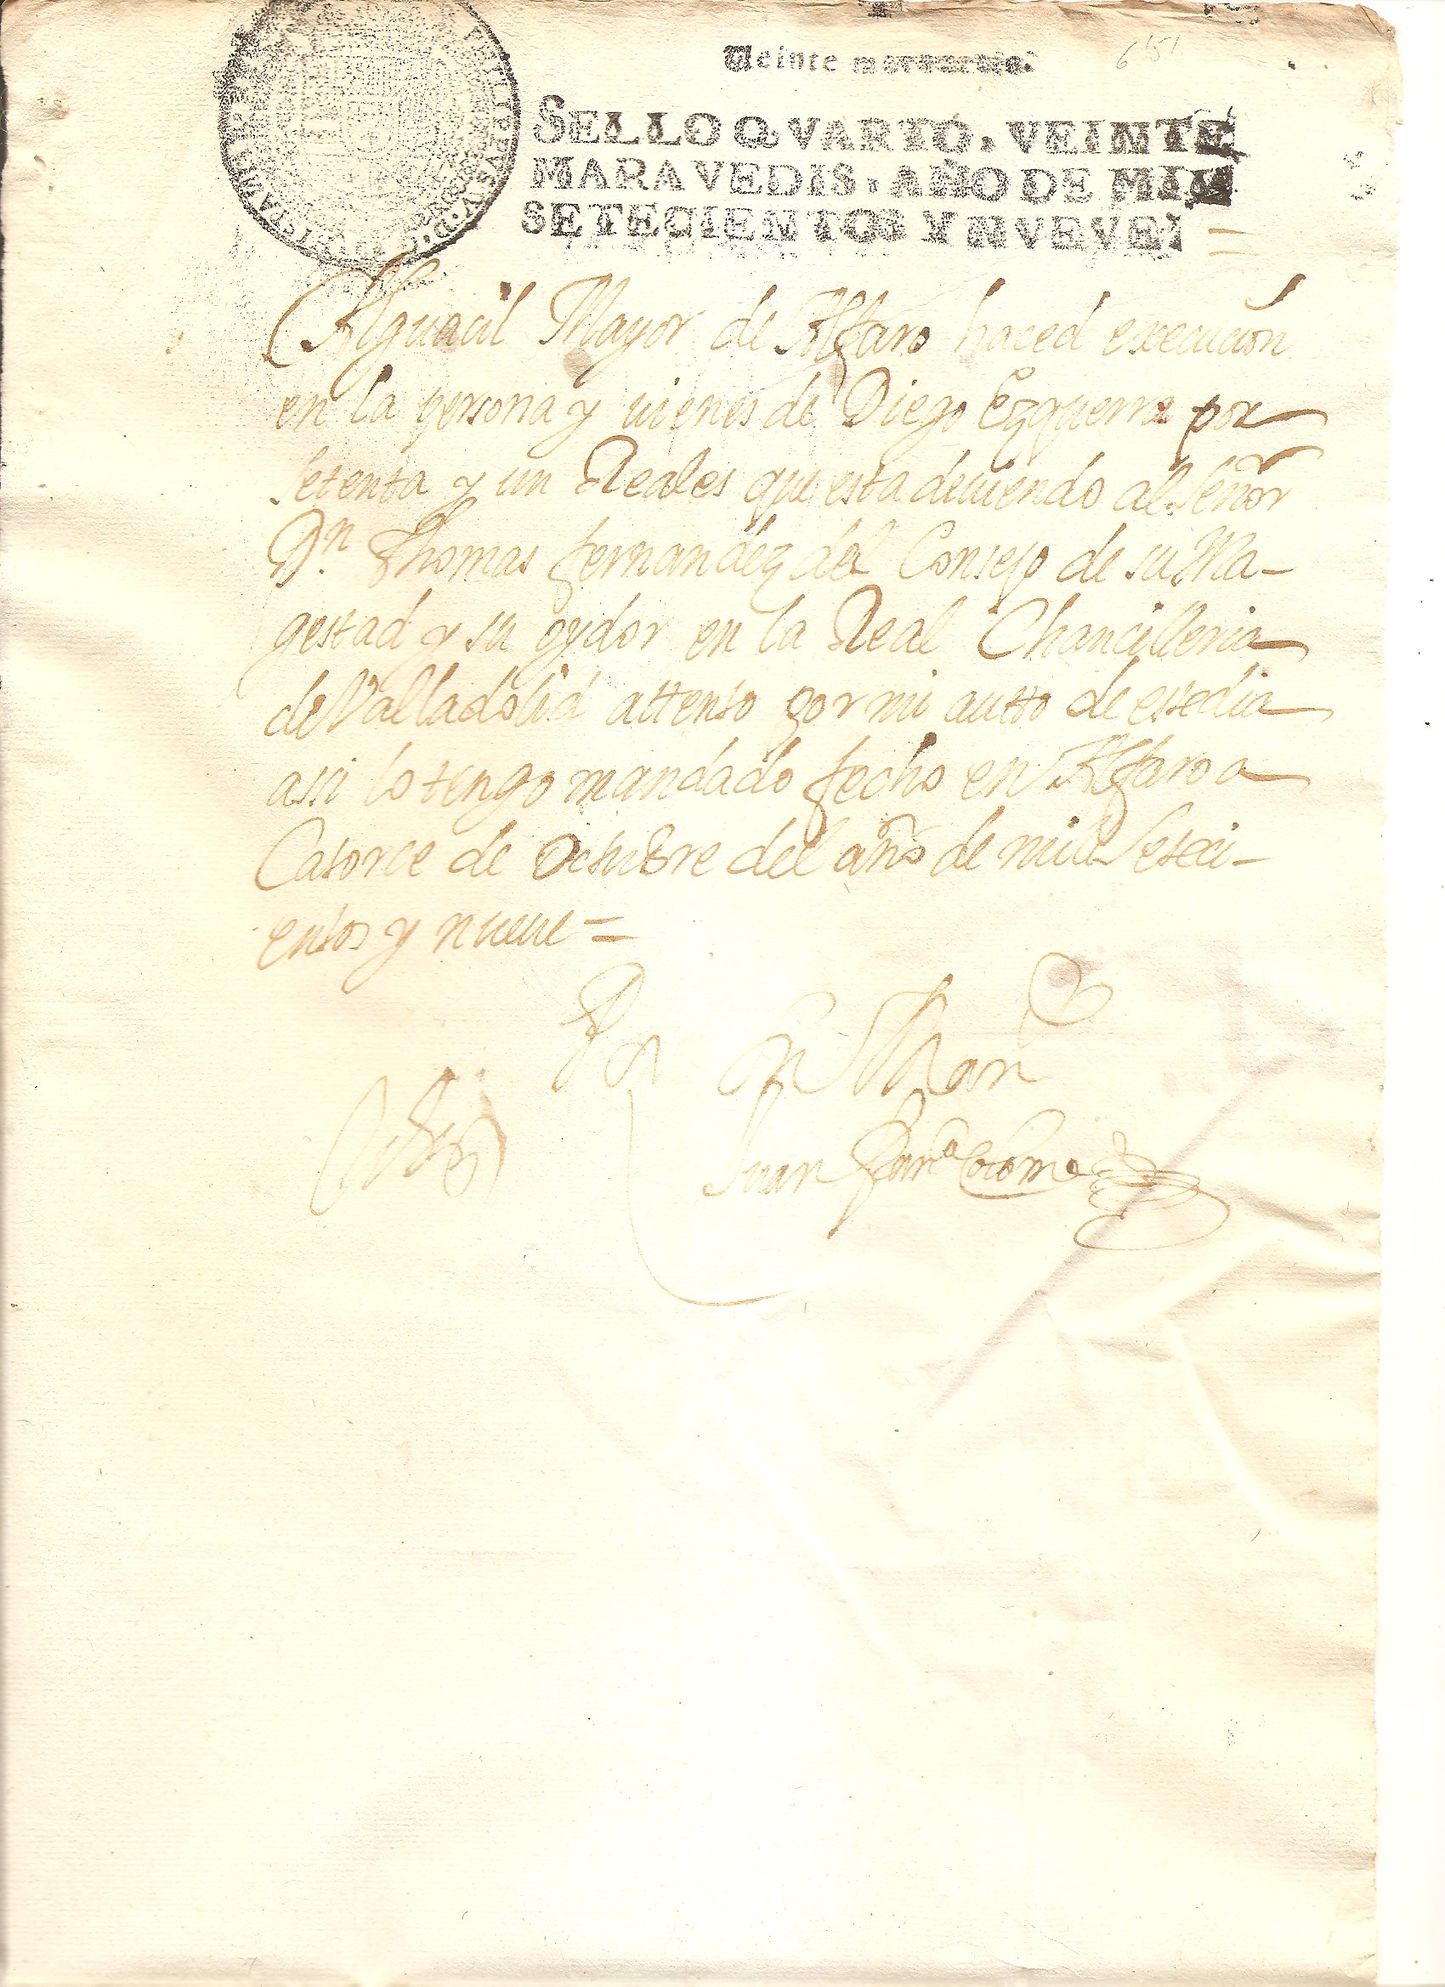 6151
Veinte maravedis.
SELLO QVARTO, VEINTE
MARAVEDIS, AÑO DE MIL
SETECIENTOS Y NVEVE.
PHILIPPVS V. D. G.
Alguacil Mayor de Alfaro haced execucion
en la persona y uienes de Diego Ezquerra por
setenta y un Reales que esta deuiendo al Señor
Dn. Thomas fernandez del Consejo de su Ma-
gestad y su oydor en la Real Chancilleria
de Valladolid attento por mi autto de este dia
assi lo tengo mandado fecho en Alfaro a
Catorce de Octubre del año de mill Seteci-
entos y nueue =
Juan